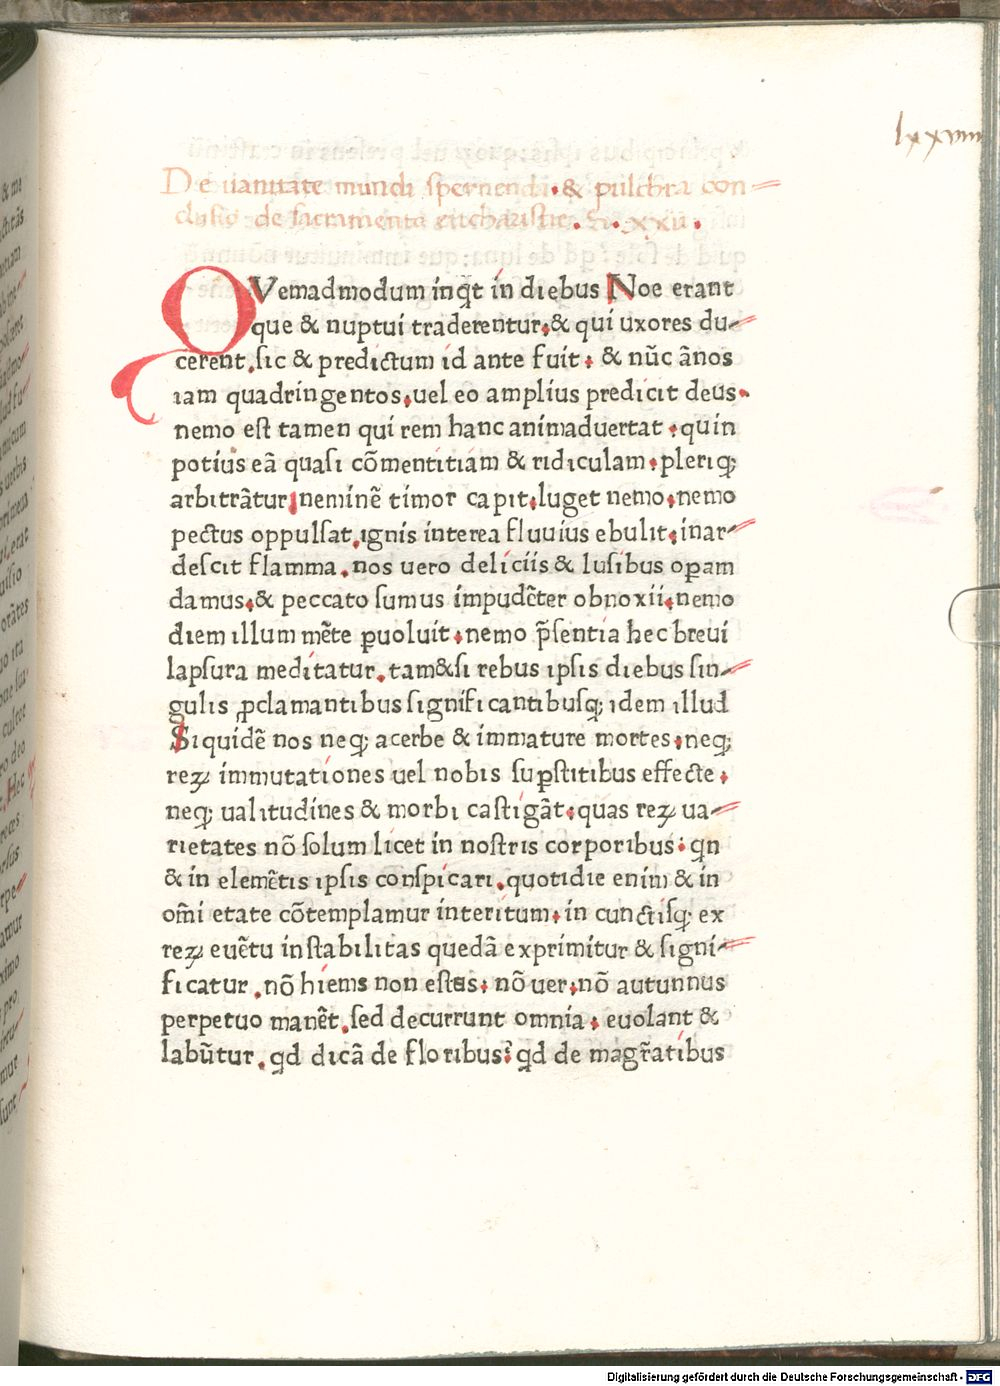 lxxviiii
De uanitate mundi spernenda. & pulchra con=
clusio de sacramento eucharistie. C. xxii.
QVemadmodum inq̃t in diebus Noe erant
que & nuptui traderentur, & qui uxores du-
cerent, sic & predictum id ante fuit, & nũc ãnos
iam quadringentos, uel eo amplius predicit deus.
nemo est tamen qui rem hanc animaduertat, quin
potius eã quasi cõmentitiam & ridiculam, pleriqꝫ
arbitrãtur, neminẽ timor capit, luget nemo, nemo
pectus oppulsat, ignis interea fluuius ebulit, inar-
descit flamma. nos uero deliciis & lusibus oꝑam
damus, & peccato sumus impudẽter obnoxii, nemo
diem illum mẽte ꝑuoluit, nemo p̃sentia hec breui
lapsura meditatur. tam&si rebus ipsis diebus sin-
gulis ꝓclamantibus significantibusqꝫ idem illud
Siquidẽ nos neqꝫ acerbe & immature mortes, neqꝫ
reꝝ immutationes uel nobis suꝑstitibus effecte,
neqꝫ ualitudines & morbi castigãt, quas reꝝ ua-
rietates nõ solum licet in nostris corporibus: qn
& in elemẽtis ipsis conspicari. quotidie enim & in
om̃i etate cõtemplamur interitum, in cunctisqꝫ ex
reꝝ euẽtu instabilitas quedã exprimitur & signi-
ficatur. nõ hiems non estas, nõ uer, nõ autunnus
perpetuo manẽt, sed decurrunt omnia, euolant &
labũtur. qd dicã de floribus? qd de magr̃atibus
Digitalisierung gefördert durch die Deutsche Forschungsgemeinschaft - DFG